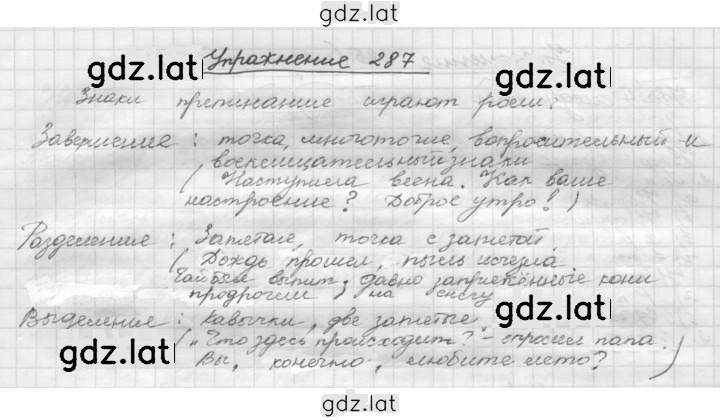 gdz.lat
Упражнение 287
gdz.lat gdz.lat
Знаки препинание играют роли:
Завершение : точка, многоточие, вопросительный и
восклицательный знаки
( Наступила весна. Как ваше
настроение ? Доброе утро ! )
gdz.lat gdz.lat
Разделение : Запятые, точка с запятой.
( Дождь прошел, пыль исчезла
Чай был выпит ; давно запряжённые кони
продрогли на снегу
gdz.lat
Выделение : кавычки, две запятые
gdz.lat
( „Что здесь происходит?" - спросил папа.
Вы, конечно, любите лето? )
gdz.lat